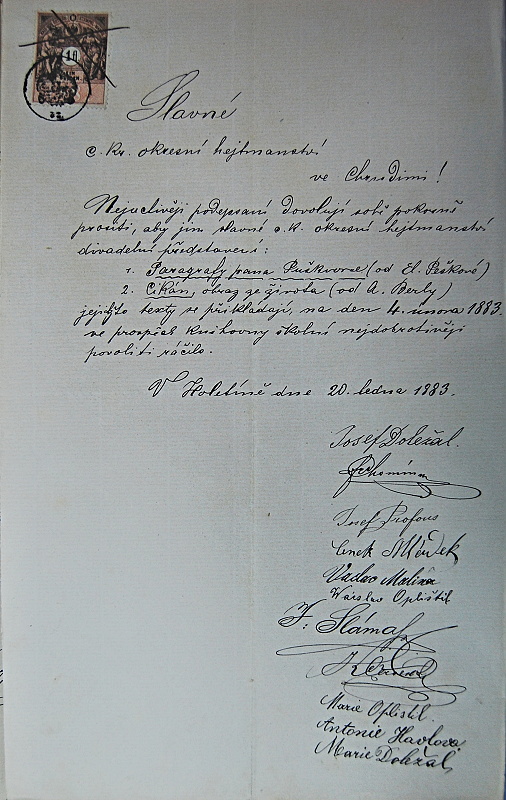 10
Slavné
c. kr. okresní hejtmanství
ve Chrudimi!
Nejuctivěji podepsaní dovolují sobě pokorně
prositi, aby jim slavné c. k. okresní hejtmanství
divadelní představení:
1. Paragrafy pana Puškvorce (od El. Peškové)
2. Cikán, obraz ze života (od A. Berly)
jejichžto texty se přikládají, na den 4. února 1883.
ve prospěch knihovny školní nejdobrotivěji
povoliti ráčilo.
V Holetíně dne 20. ledna 1883.
Josef Doležal.
Josef Profous
Čeněk Mládek
Václav Malina
Václav Oplištil
F. Sláma
Marie Oplistil.
Antonie Havlova
Marie Doležal